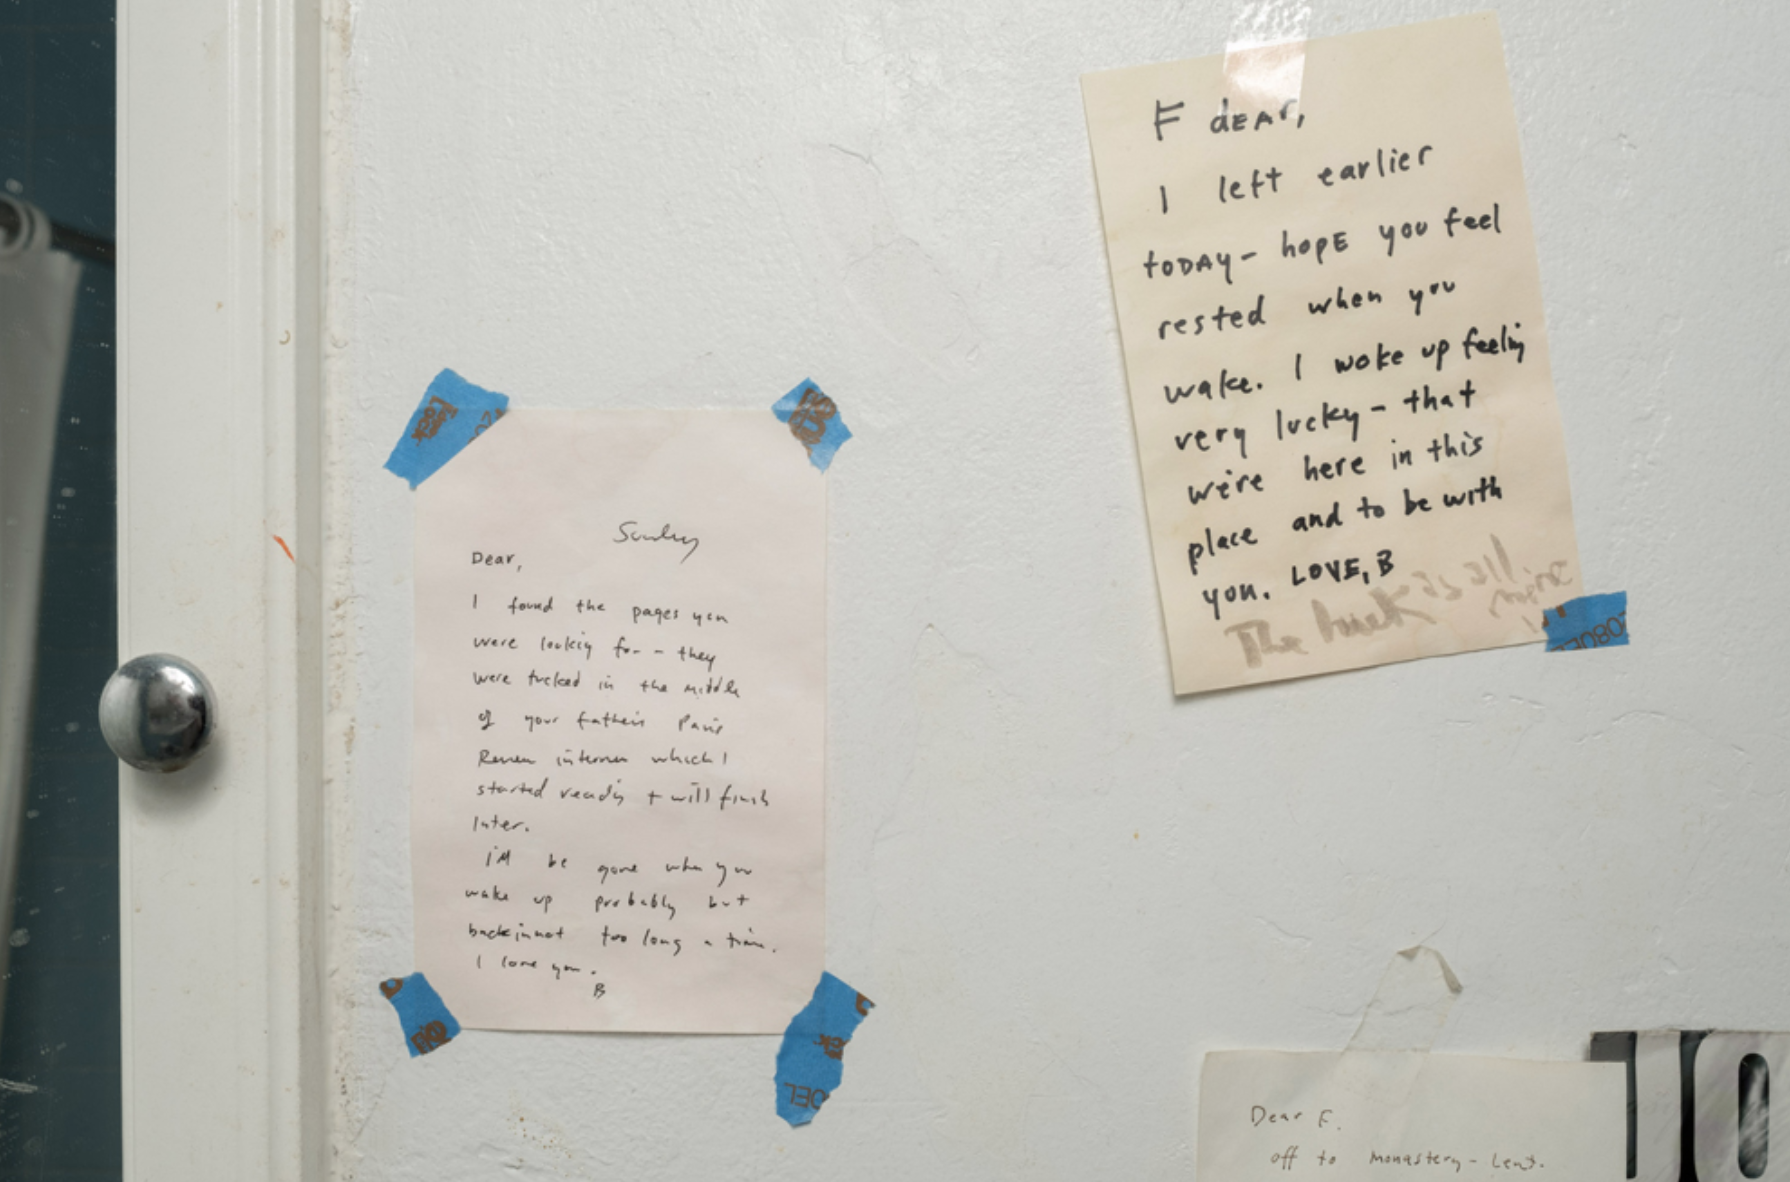 Sunday
Dear,
I found the pages you
were looking for - they
were tucked in the middle
of your father's Paris
Review interview which I
started reading + will finish
later.
I'll be gone when you
wake up probably but
back in not too long a time.
I love you.
B
F dEAr,
I left earlier
toDAy - hopE you feel
rested when you
wake. I woke up feeling
very lucky - that
we're here in this
place and to be with
you. LOVE, B
The luck is all
mine
Dear F.
off to Monastery - Lent.
10